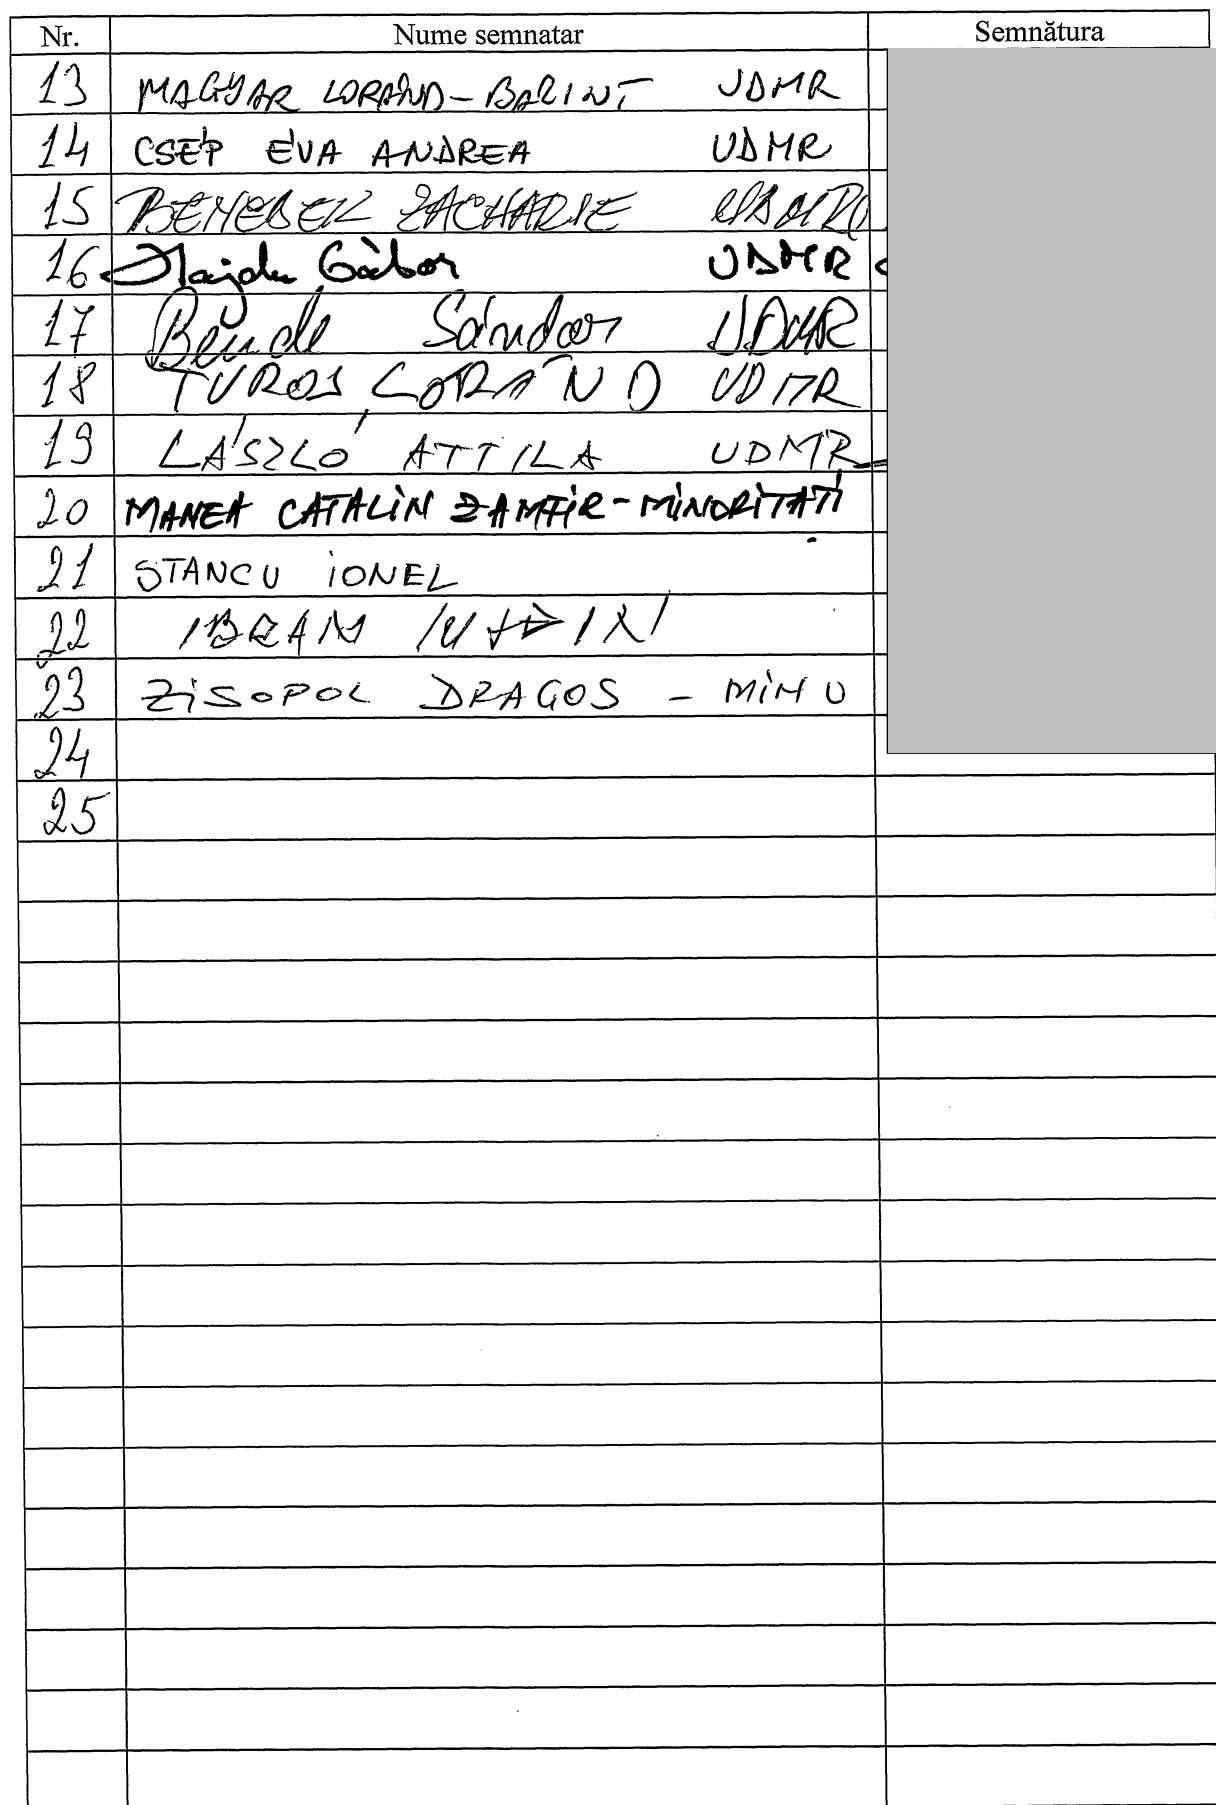 Nr. Nume semnatar Semnătura
13 MAGYAR LORÁND-BALINT UDMR
14 CSÉP ÉVA ANDREA UDMR
15 BENEDEK ZACHARIE UDMR
16 Hajdu Gábor UDMR
17 Bende Sándor UDMR
18 TUROS LORÁND UDMR
19 LÁSZLÓ ATTILA UDMR
20 MANEA CATALIN ZAMFIR-MINORITATI
21 STANCU IONEL
22 IBRAM
23 ZISOPOL DRAGOS - MIN
24
25